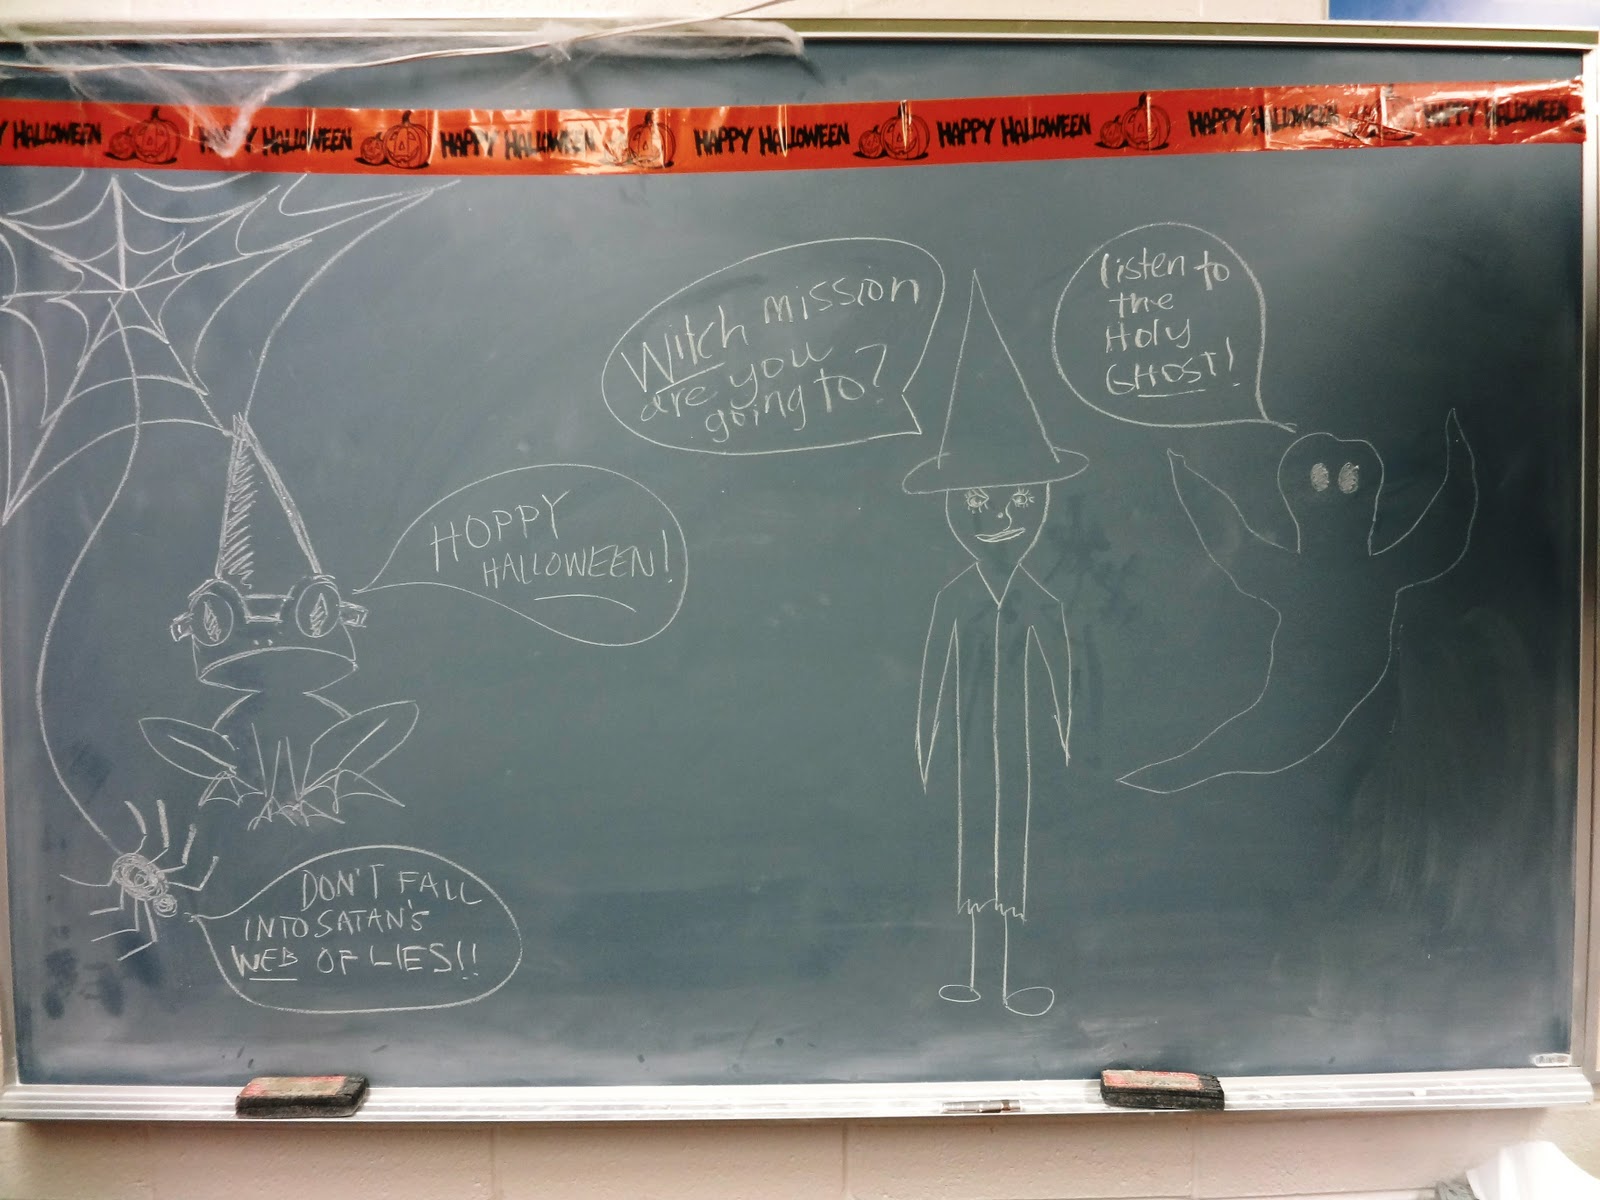 Y HALLOWEEN HAPPY HALLOWEEN HAPPY HALLOWEEN HAPPY HALLOWEEN HAPPY HALLOWEEN HAPPY HALLOWEEN HAPPY HALLOWEEN
HOPPY
HALLOWEEN!
DON'T FALL
INTO SATAN'S
WEB OF LIES!!
Witch mission
are you
going to?
listen to
the
Holy
GHOST!